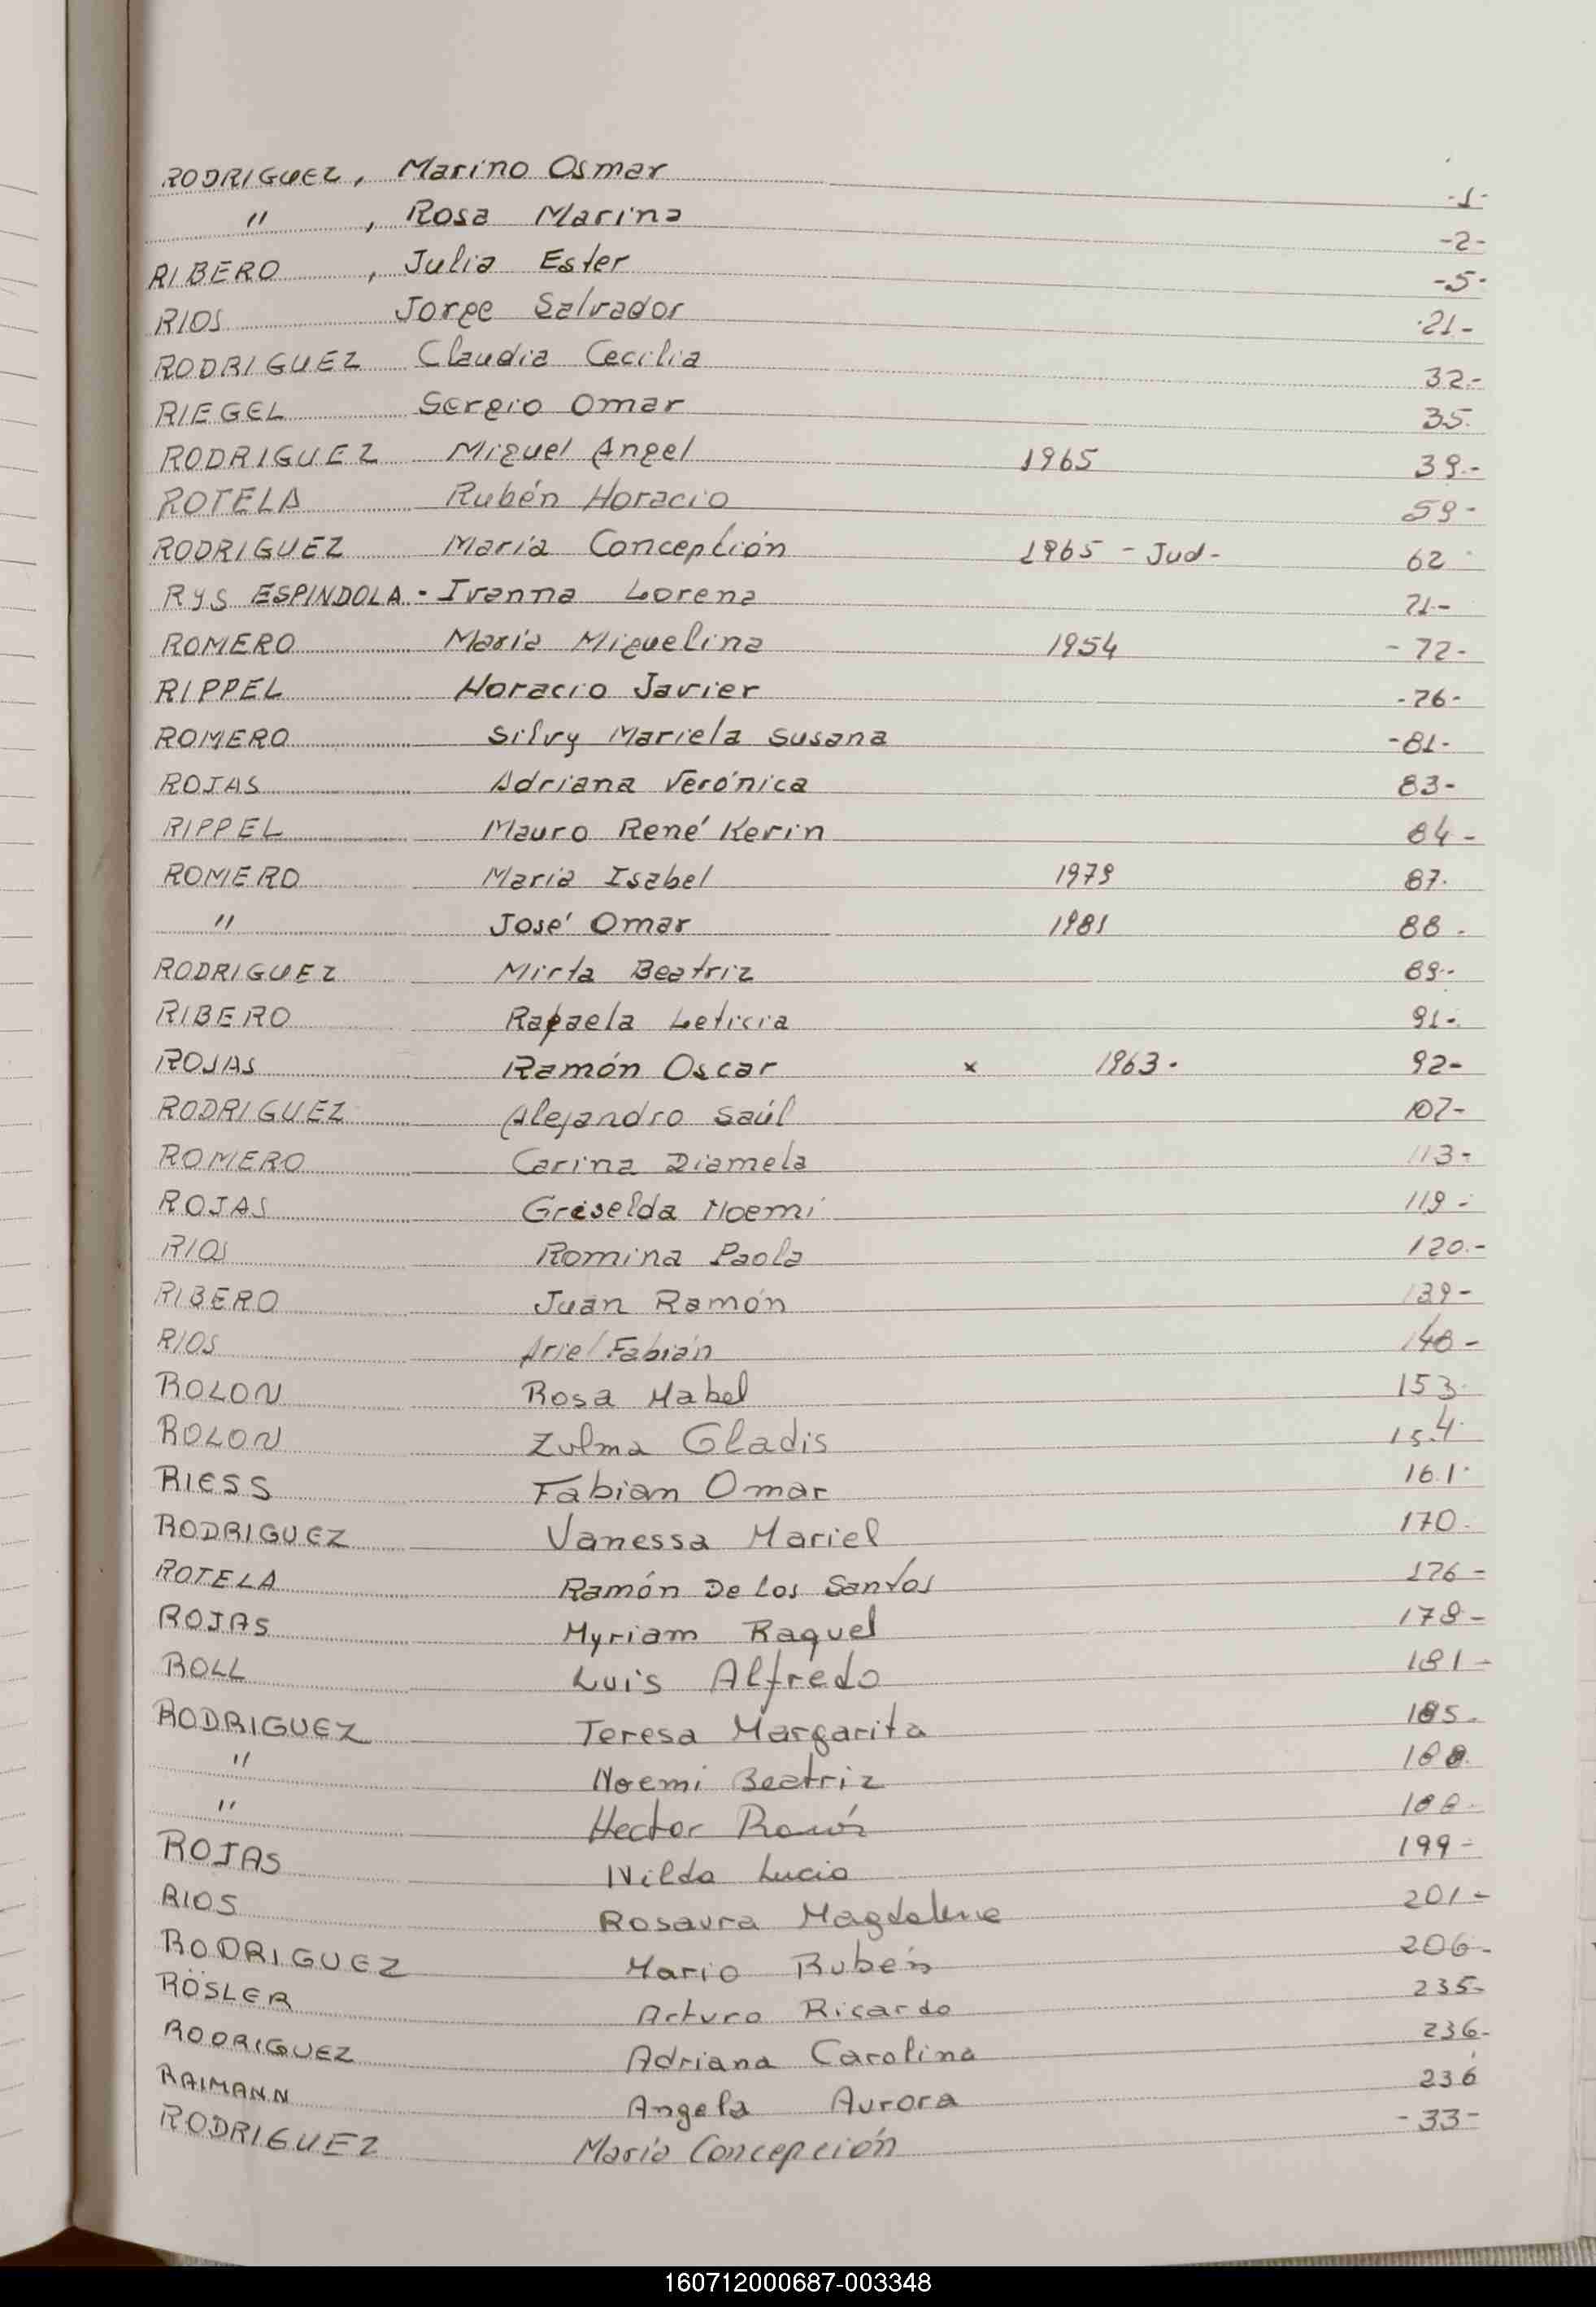 RODRIGUEZ, Marino Osmar -1-
" , Rosa Marina -2-
RIBERO , Julia Ester -5-
RIOS Jorge Salvador -21-
RODRIGUEZ Claudia Cecilia 32.-
RIEGEL Sergio Omar 35.
RODRIGUEZ Miguel Angel 1965 39.-
ROTELA Rubén Horacio 59-
RODRIGUEZ María Concepción 1965 - Jud- 62
RyS ESPINDOLA - Ivanna Lorena 71-
ROMERO María Miguelina 1954 - 72-
RIPPEL Horacio Javier -76-
ROMERO Silvy Mariela Susana -81-
ROJAS Adriana Verónica 83-
RIPPEL Mauro René Kevin 84-
ROMERO Maria Isabel 1979 87.
" José Omar 1981 88.
RODRIGUEZ Mirta Beatriz 89.-
RIBERO Rafaela Leticia 91-.
ROJAS Ramón Oscar x 1963- 92-
RODRIGUEZ Alejandro Saúl 107-
ROMERO Carina Diamela 113-
ROJAS Griselda Noemí 119-
RIOS Romina Paola 120.-
RIBERO Juan Ramón 139-
RIOS Ariel Fabián 148-
ROLON Rosa Mabel 153.
ROLON Zulma Gladis 154.
RIESS Fabian Omar 161.
RODRIGUEZ Vanessa Mariel 170.
ROTELA Ramón De Los Santos 176-
ROJAS Myriam Raquel 178-
ROLL Luis Alfredo 181-
RODRIGUEZ Teresa Margarita 185.
" Noemi Beatriz 188.
" Hector Ramón 188.
ROJAS Nilda Lucia 199-
RIOS Rosaura Magdalena 201-
RODRIGUEZ Mario Rubén 206-
RÖSLER Arturo Ricardo 235-
RODRIGUEZ Adriana Carolina 236-
RAIMANN Angela Aurora 236
RODRIGUEZ María Concepción -33-
160712000687-003348